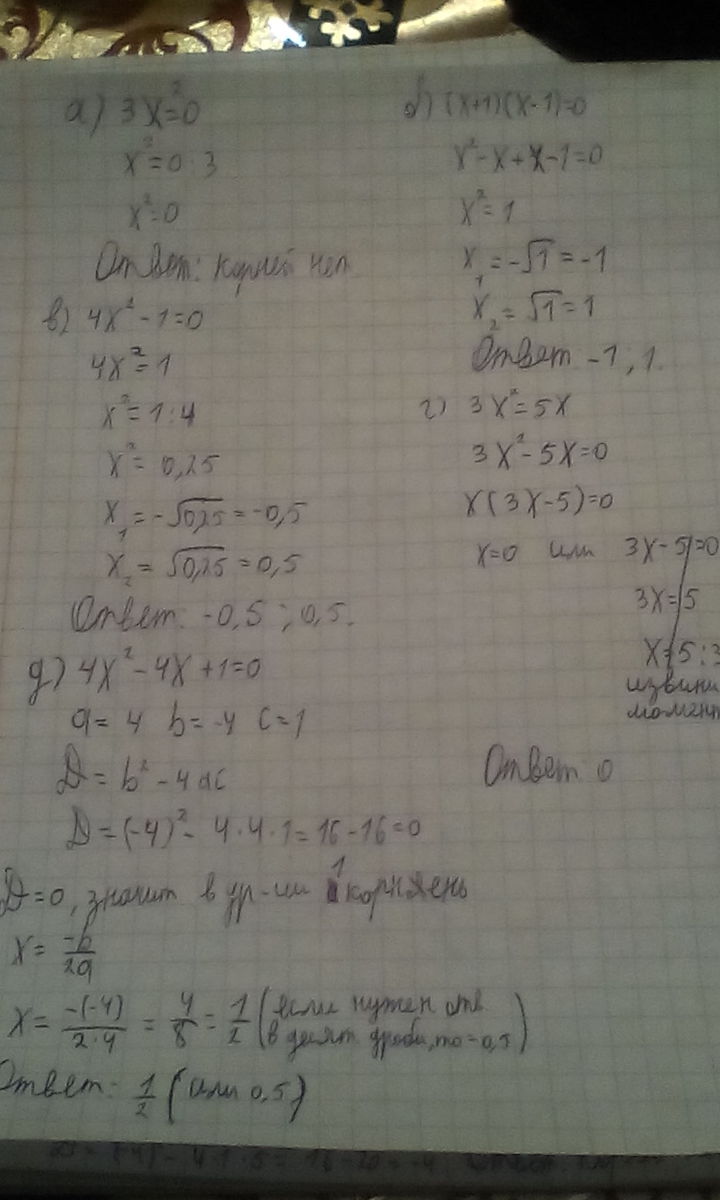 а) 3x²=0
x²=0:3
x²=0
Ответ: корней нет
б) (x+1)(x-1)=0
x²-x+x-1=0
x²=1
x₁=-√1=-1
x₂=√1=1
Ответ -1; 1.
в) 4x²-1=0
4x²=1
x²=1:4
x²=0,25
x₁=-√0,25=-0,5
x₂=√0,25=0,5
Ответ: -0,5; 0,5.
г) 3x²=5x
3x²-5x=0
x(3x-5)=0
x=0 или 3x-5=0
3x=5
x=5:3
извини
момент
Ответ 0
д) 4x²-4x+1=0
a=4 b=-4 c=1
D=b²-4ac
D=(-4)²-4·4·1=16-16=0
D=0, значит в ур-ии 1 корнлень
x=-b/2a
x=-(-4)/2·4=4/8=1/2 (если нужен отв.
в десят. дроби, то=0,5)
Ответ: 1/2 (или 0,5)